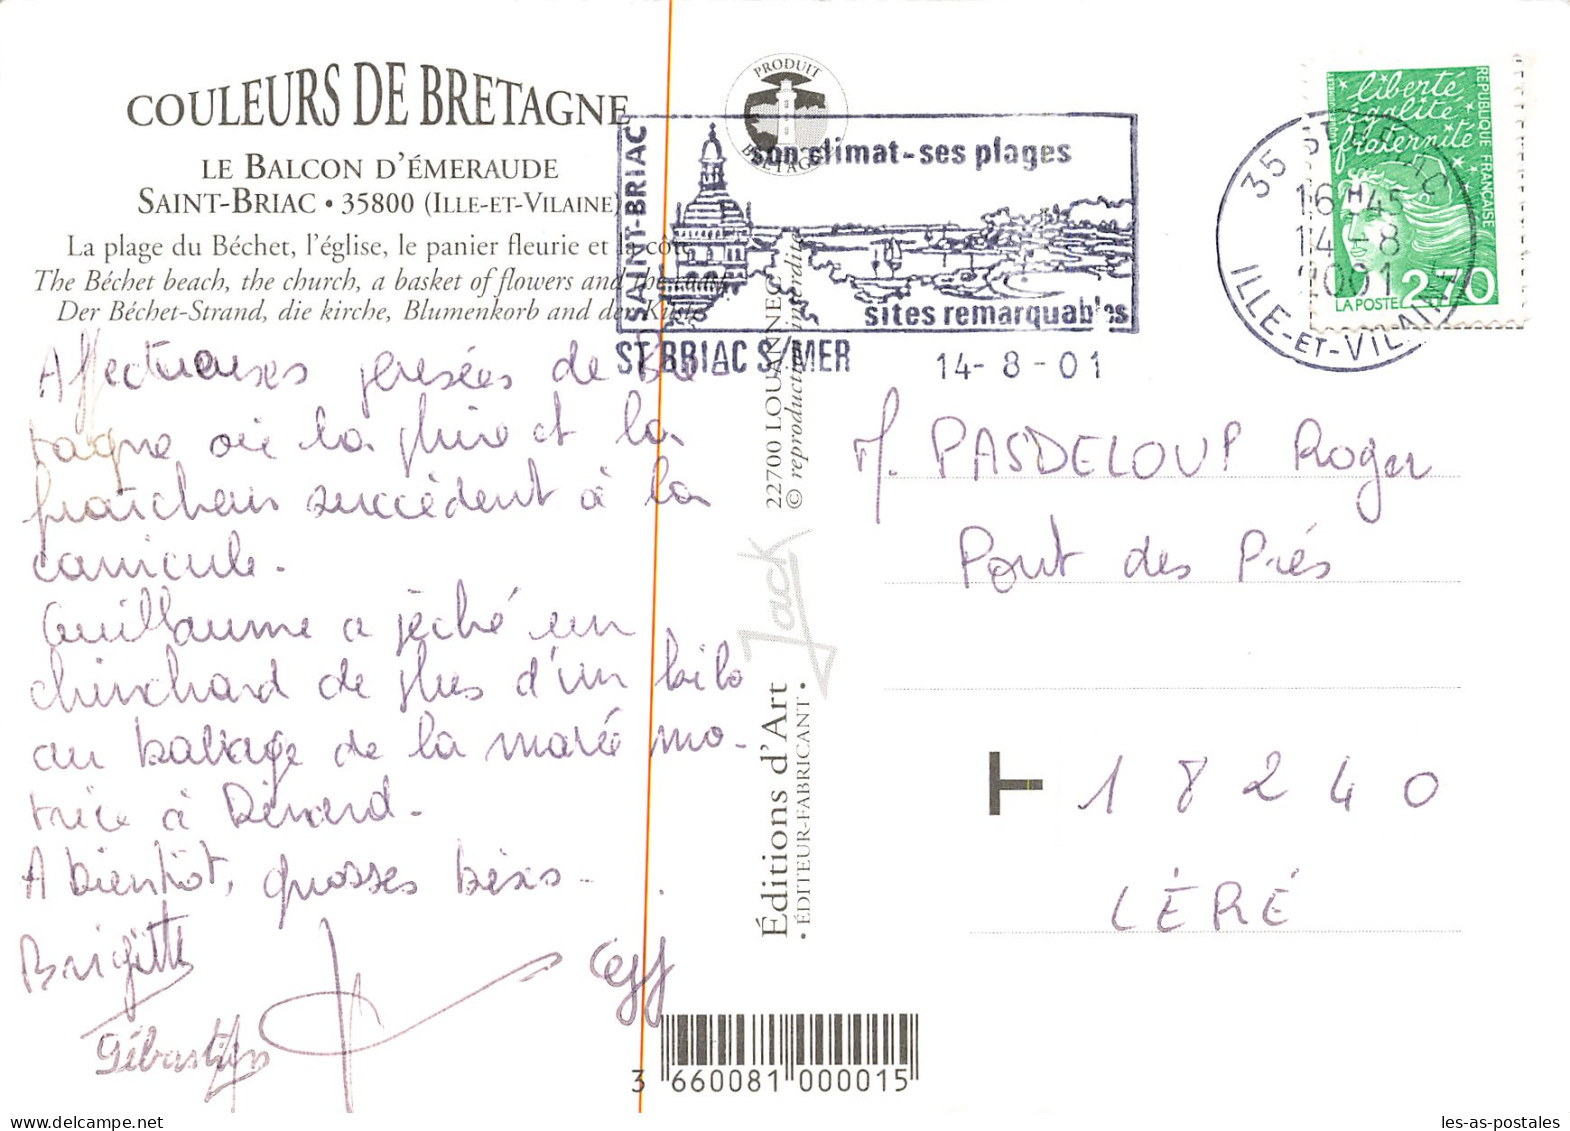 COULEURS DE BRETAGNE
LE BALCON D'ÉMERAUDE
SAINT-BRIAC • 35800 (ILLE-ET-VILAINE)
La plage du Béchet, l'église, le panier fleurie et la côte
The Béchet beach, the church, a basket of flowers and the coast
Der Béchet-Strand, die kirche, Blumenkorb and der Küste
Affectueuses pensées de Bre-
tagne où la pluie et la
fraîcheur succèdent à la
canicule.
Guillaume a pêché un
chinchard de plus d'un kilo
au barrage de la marée mo-
trice à Dinard.
A bientôt, grosses bises.
Brigitte
Sébastien
PRODUIT
BRETAGNE
SAINT-BRIAC
son climat-ses plages
sites remarquables
ST BRIAC S/MER
14-8-01
22700 LOUANNEC
© reproduction interdite
Jack
Éditions d'Art
• ÉDITEUR-FABRICANT •
35 ST BRIAC
16H45
14-8
2001
ILLE-ET-VILAINE
liberté
égalité
fraternité
RÉPUBLIQUE FRANÇAISE
LA POSTE 2,70
M. PASDELOUP Roger
Pont des Prés
T 18240
LÉRÉ
3 660081 000015
les-as-postales